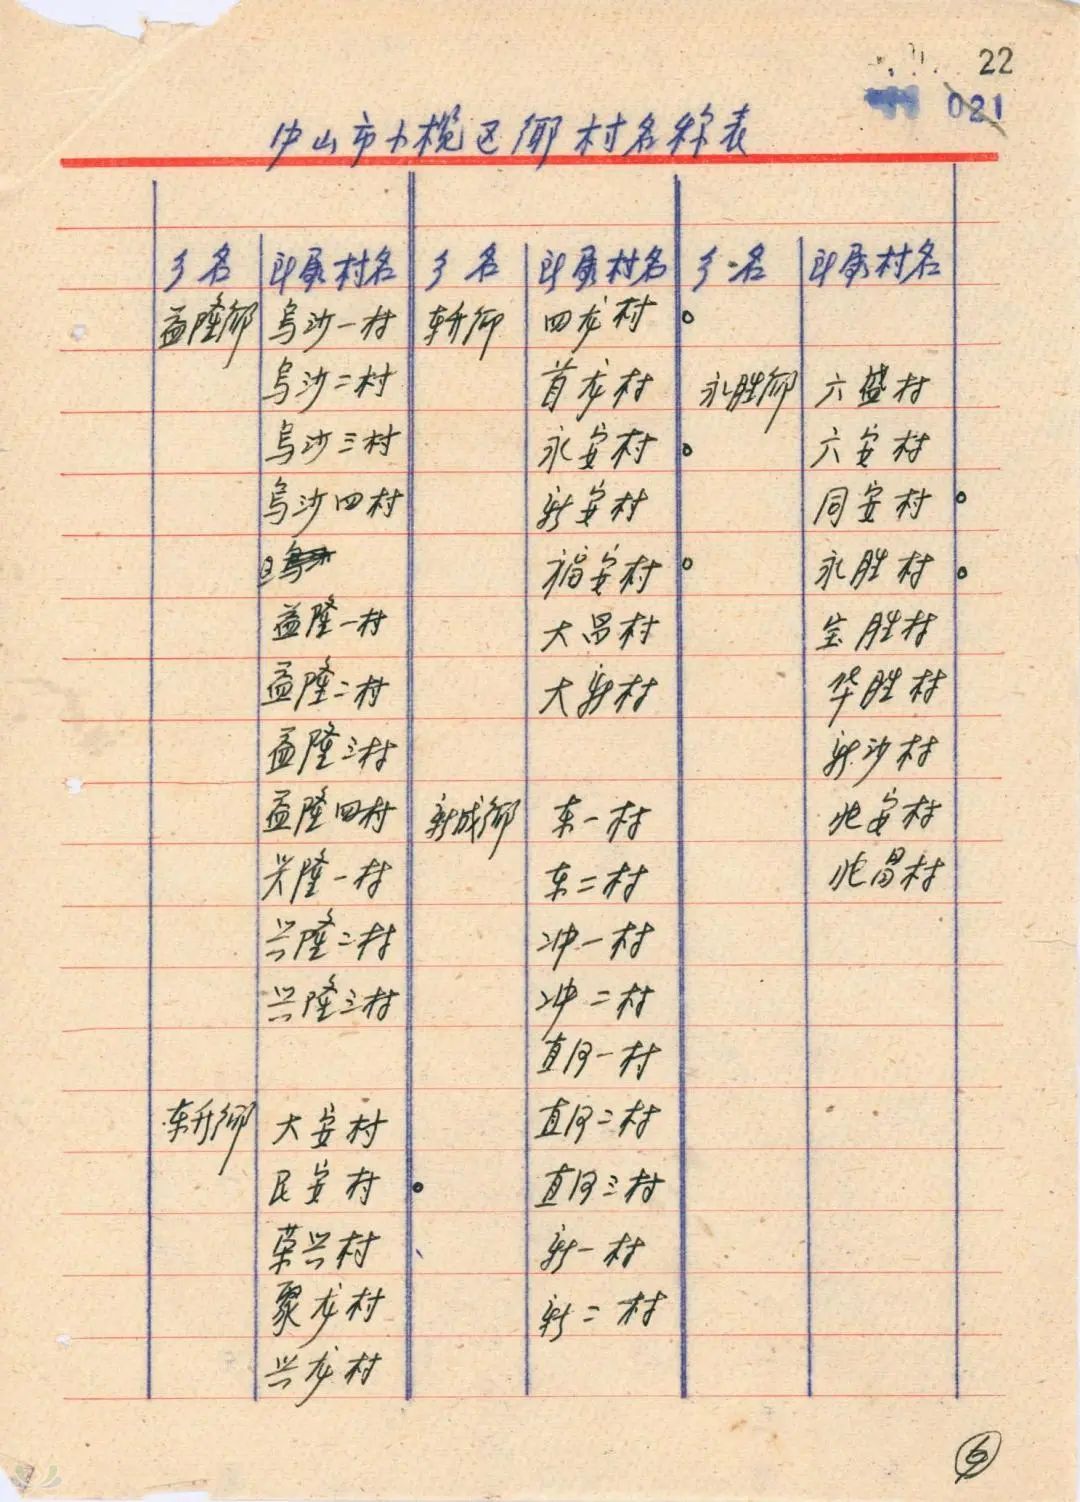 22
021
中山市小榄区鄉村名称表
乡名 所属村名 乡名 所属村名 乡名 所属村名
益隆鄉 乌沙一村 东升鄉 四龙村
乌沙二村 首龙村 永胜鄉 六盛村
乌沙三村 永安村 六安村
乌沙四村 新安村 同安村
福安村 永胜村
益隆一村 大昌村 宝胜村
益隆二村 大新村 华胜村
益隆三村 新沙村
益隆四村 新成鄉 东一村 兆安村
兴隆一村 东二村 兆昌村
兴隆二村 冲一村
兴隆三村 冲二村
直河一村
东升鄉 大安村 直河二村
民安村 直河三村
荣兴村 新一村
聚龙村 新二村
兴龙村
6